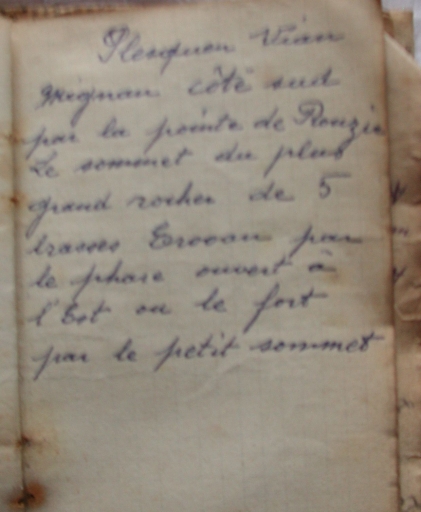 Plesquen Vian
grignan côté sud
par la pointe de Rouzic
Le sommet du plus
grand rocher de 5
brasses par
le phare ouvert à
l'Est ou le fort
par le petit sommet